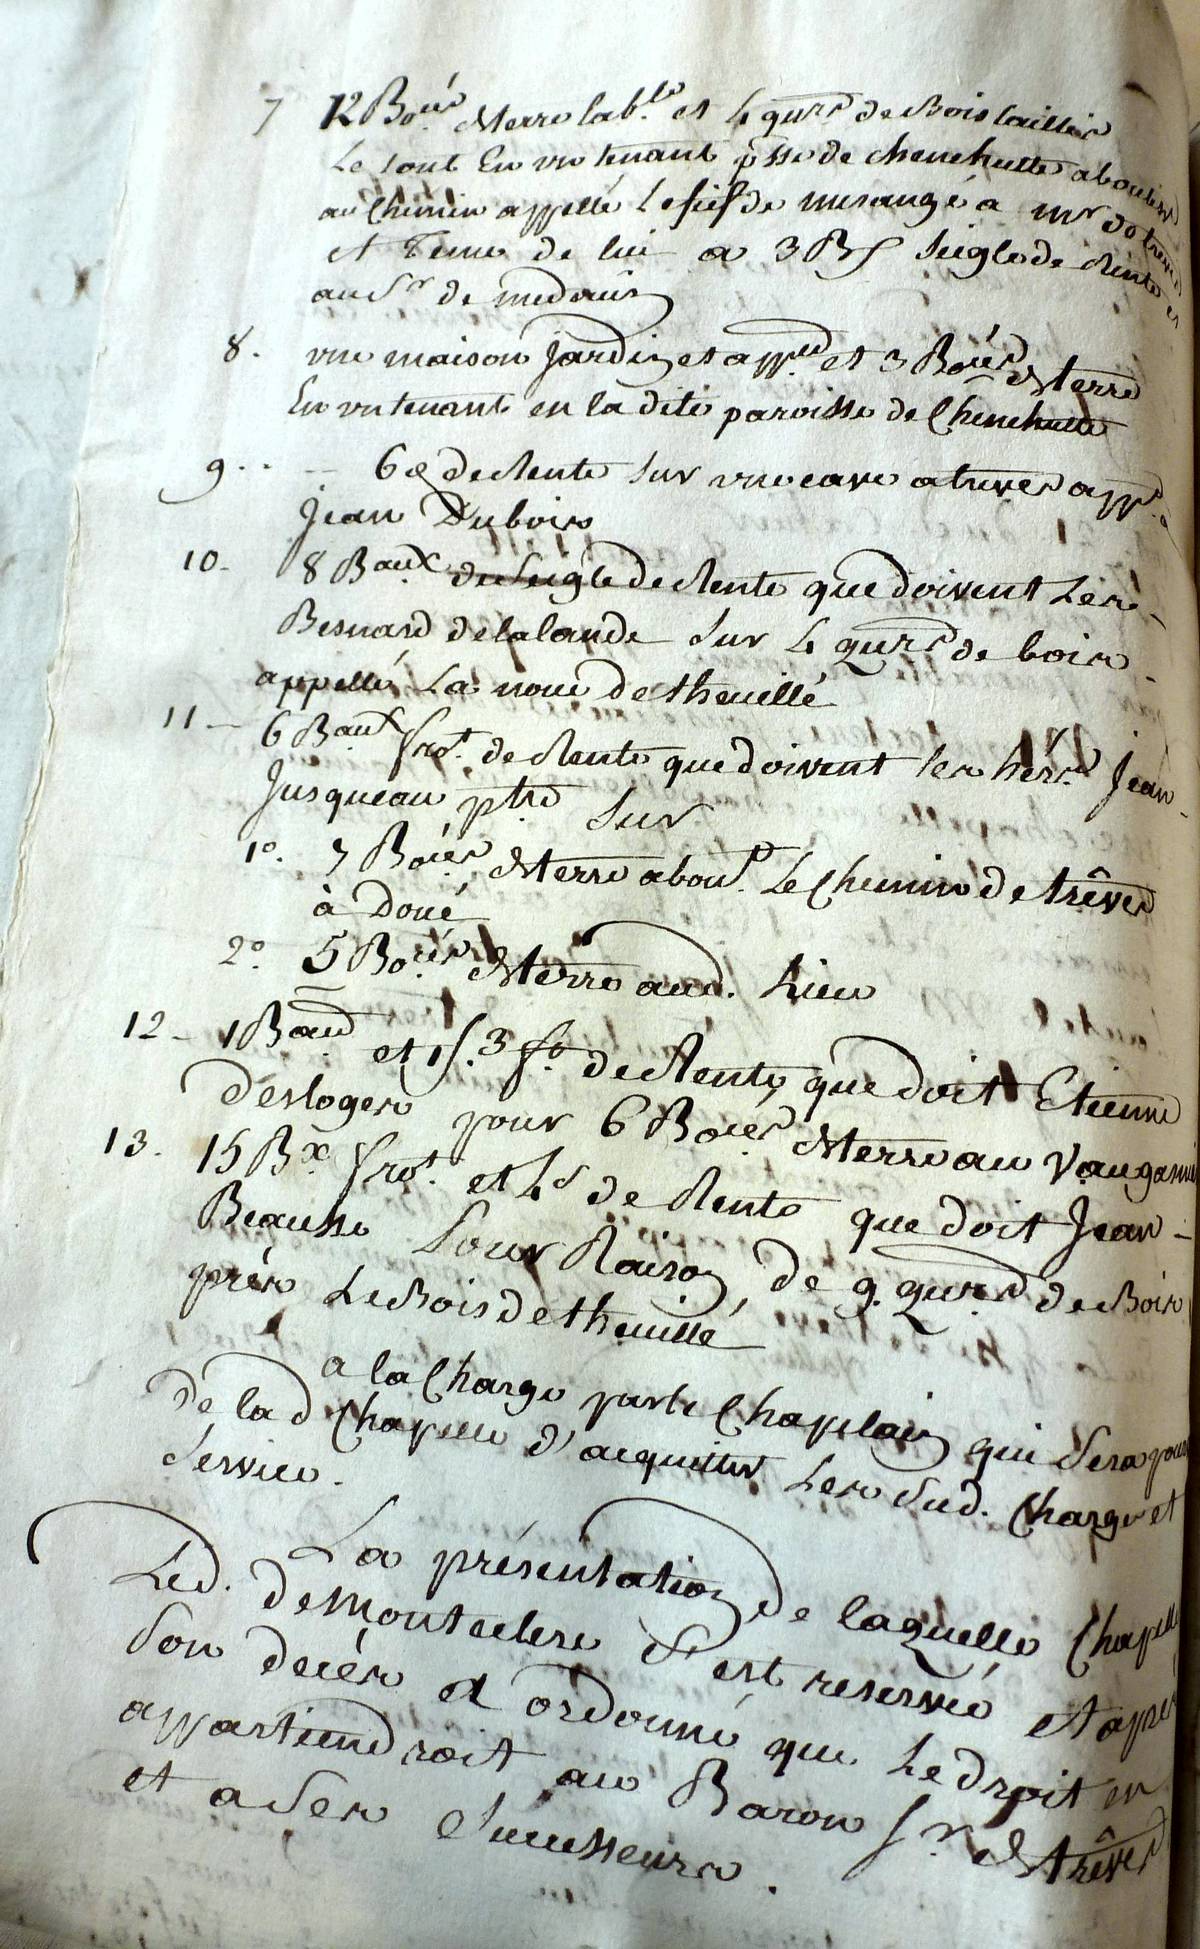 7 12 Boées de terre lab.le et 4 qurs de Bois taillis
Le tout En un tenant psse de chenehutte aboutist
au Chemin appellé Le fief de misangé a Mr do
et Tenu de lui a 3 Bs seigle de Rente
au Sr de medouin
8. une maison Jardin et app.ces et 3 Boées de terre
En un tenant en la dite paroisse de Chenehutte
9.. 6 d de Rente sur une cave a treves app.
Jean Dubois
10. 8 Baux de seigle de Rente que doivent Les
Besnard de la lande sur 4 qurs de bois
appellé La noue de theuillé
11 - 6 Baux fro.t de Rente que doivent les hérs Jean
Jusqueau ptre sur
1o. 7 Boées de terre about. Le Chemin de trêves
à Doué
2o. 5 Boées de terre aud. Lieu
12 - 1 Bau et 1 s. 3 d de Rente que doit Etienne
Desloges pour 6 Boées de terre au
13. 15 Bx fro.t et 4 s de Rente que doit Jean
Beausse pour Raison de 9 qurs de Bois
près Le Bois de theuillé
a la Charge par le Chapelain qui sera
de lad Chapelle d'acquitter Les sud. Charge et
service.
La présentation de laquelle Chapelle
Led. de Monteclerc s'est reservé et après
son decés a ordonné que Le droit en
appartiendroit au Baron Sr de trêves
et a ses Successeurs.